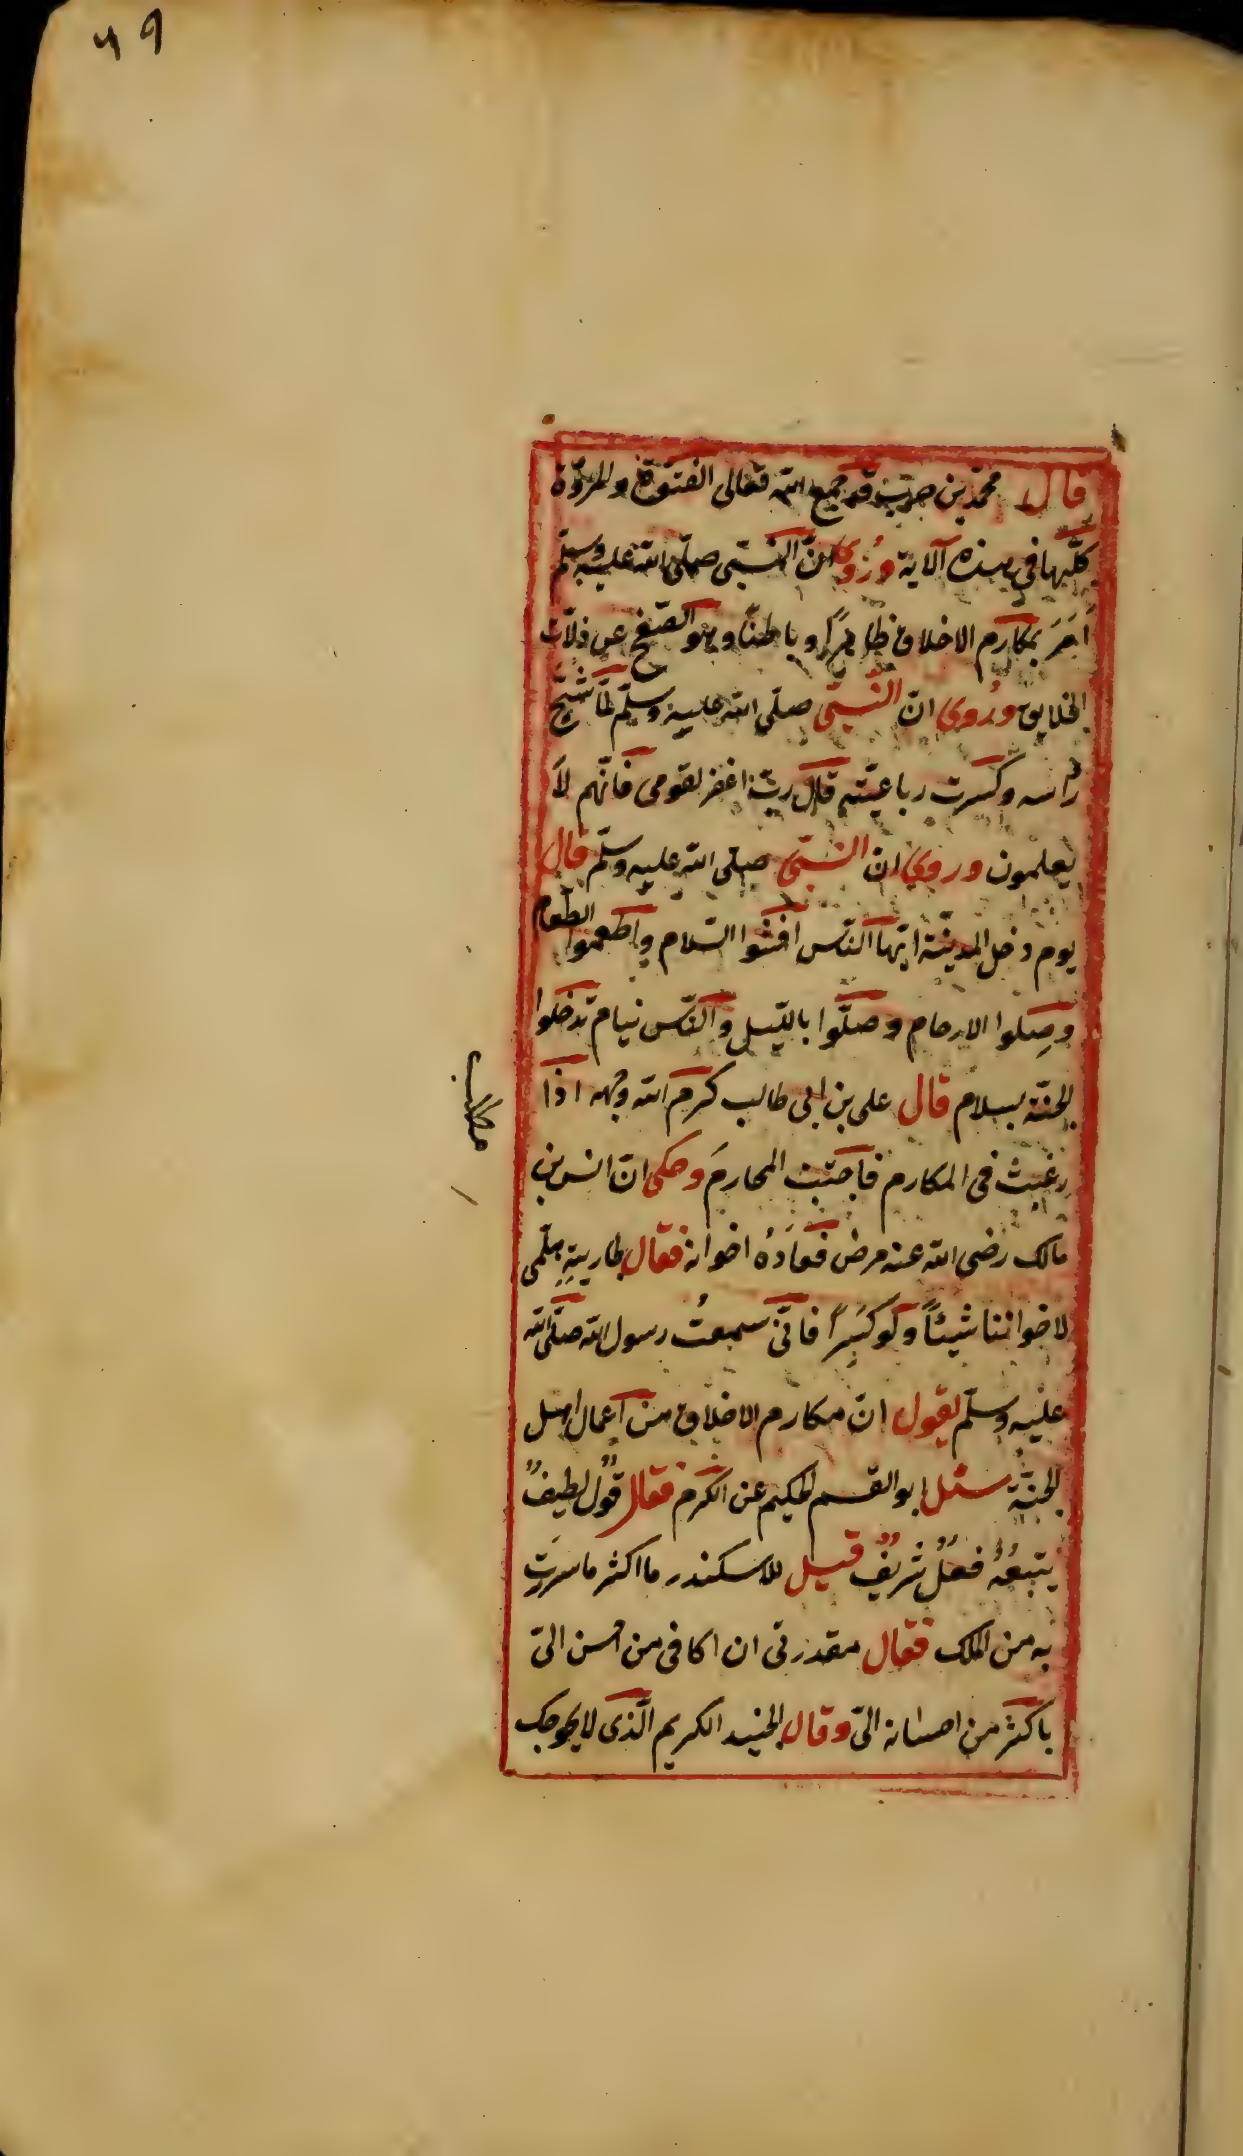 ٤٩
قال محمّد بن حرب قد جمع الله تعالى الفتوّة والمروّة
كلّها فى هذه الآية ورُوى انّ النّبىّ صلّى الله عليه وسلّم
اَمَرَ بمكارم الاخلاق ظاهرًا و باطنًا وهو الصّفح عن ذلّات
الخلايق ورُوى انّ النّبىّ صلّى الله عليه وسلّم لمّا شُجّ
رأسه وكسرت رباعيّته قال ربّ اغفر لقومى فانّهم لا
يعلمون وروى ان النّبىّ صلى الله عليه وسلّم قال
يوم دخل المدينة ايّها النّاس افشوا السّلام واطعموا الطّعام
وصِلوا الارحام وصلّوا بالليّل والنّاس نيام تدخلوا
الجنّة بسلام قال على بن ابى طالب كرّم الله وجهه اذا
رغبت فى المكارم فاجتنب المحارمَ وحكى انّ انس بن
مالك رضى الله عنه مرض فعَادَهُ اخوانه فقال لجاريتِهِ هلمّى
لاخواننا شيئًا ولو كِسَرًا فانّى سمعتُ رسول الله صلّى الله
عليه وسلّم يقول انّ مكارم الاخلاق من اعمال اهل
الجنّة سئل ابو القسم الحكيم عن الكرم فقال قولٌ لطيفٌ
يتبعُهُ فعلٌ شريفٌ قيل للاسكندر ما اكثر ما سررت
به من الملك فقال مقدرتى ان اكافى من احسن الىّ
باكثر من احسانه الىّ وقال الجنيد الكريم الّذى لا يحوجك